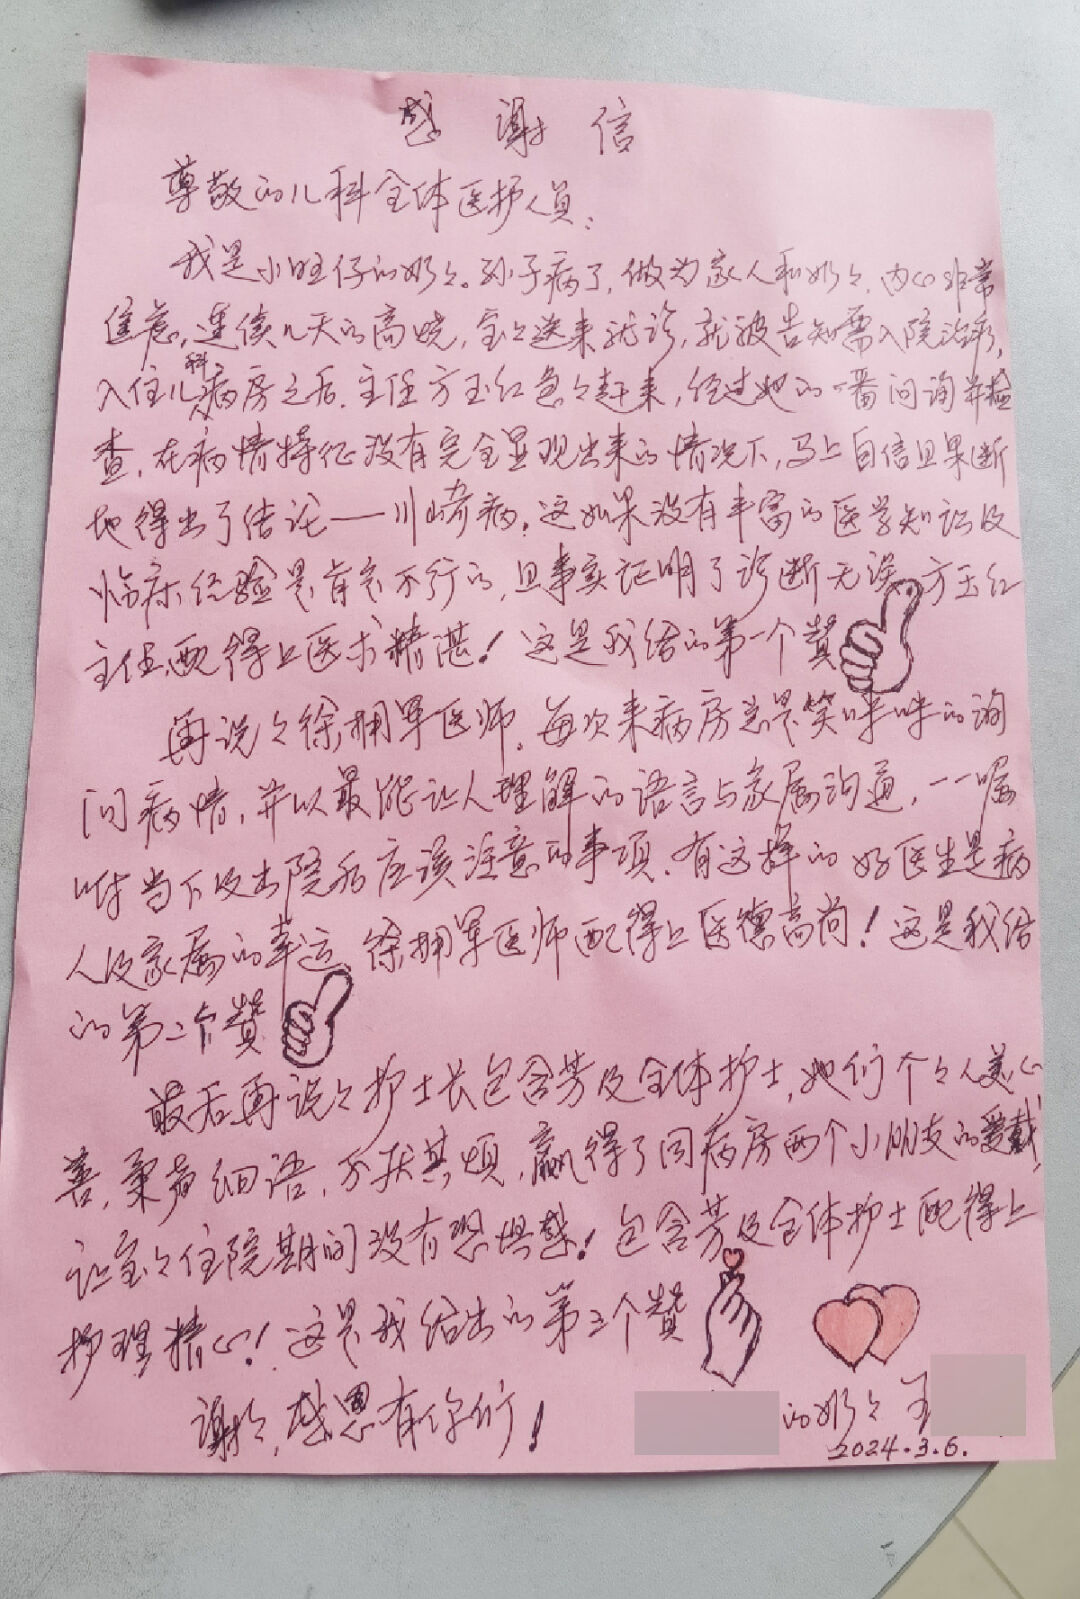 感谢信
尊敬的儿科全体医护人员:
我是小旺仔的奶々。孙子病了,做为家人和奶々,内心非常
焦急,连续几天的高烧,宝々送来就诊,就被告知需入院治疗,
入住儿科病房之后.主任方玉红急々赶来,经过她的一番问询并检
查,在病情特征没有完全显现出来的情况下,马上自信且果断
地得出了结论——川崎病。这如果没有丰富的医学知识及
临床经验是肯定不行的,且事实证明了诊断无误,方玉红
主任,配得上医术精湛!这是我给的第一个赞
再说々徐拥军医师,每次来病房总是笑呼呼的询
问病情,并以最能让人理解的语言与家属沟通,一一嘱
咐当下及出院后应该注意的事项.有这样的好医生是病
人及家属的幸运,徐拥军医师配得上医德高尚!这是我给
的第二个赞
最后再说々护士长包含芳及全体护士,她们个々人美心
善,柔声细语,不厌其烦,赢得了同病房两个小朋友的爱戴,
让宝々住院期间没有恐惧感!包含芳及全体护士配得上
护理精心!这是我给出的第三个赞
谢々,感恩有你们!
的奶々 王
2024.3.6.